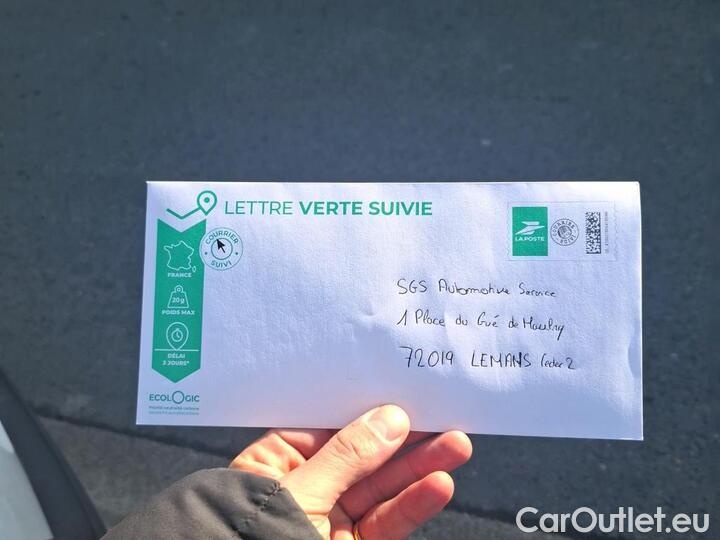 LETTRE VERTE SUIVIE
COURRIER SUIVI
LA POSTE
FRANCE
20g
POIDS MAX
DÉLAI
3 JOURS*
ECOLOGIC
SGS Automotive Service
1 Place du Gué de Maulny
72019 LEMANS Cedex 2
CarOutlet.eu